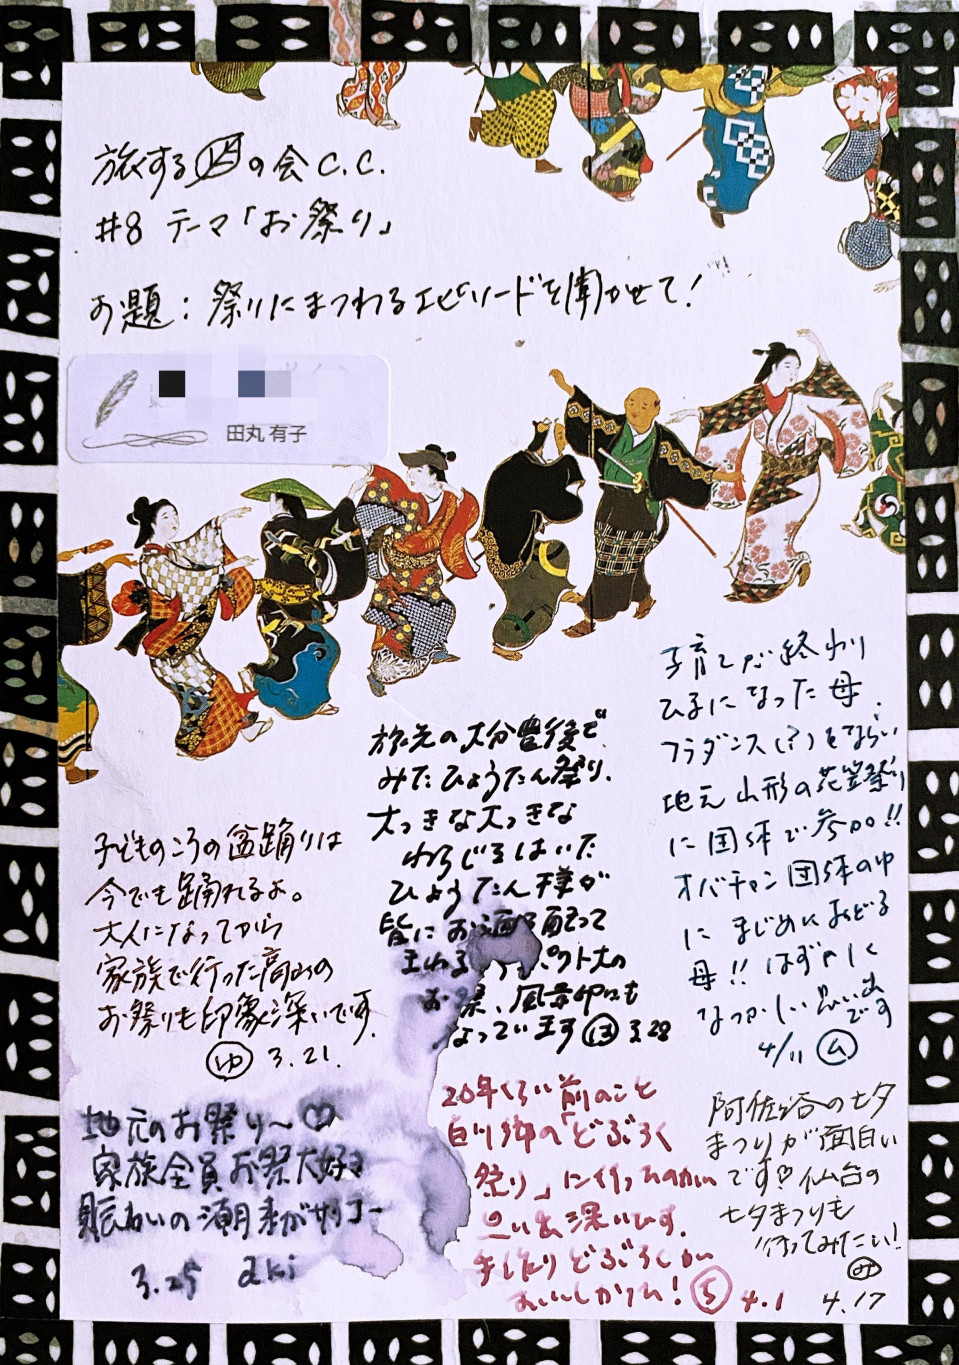 旅するの会 C.C.
#8 テーマ「お祭り」
お題：祭りにまつわるエピソードを聞かせて！
田丸 有子
子どものころの盆踊りは
今でも踊れるよ。
大人になってから
家族で行った高山の
お祭りも印象深いです。
ゆ 3.21.
地元のお祭り〜♡
家族全員お祭大好き
賑わいの潮来がサイコー
3.25 aki
旅先の大分豊後で
みたひょうたん祭り.
大っきな大っきな
わらじをはいた
ひょうたん様が
皆にお酒を配って
まわる
お
なっています ほ 3.28
20年くらい前のこと
白川郷の「どぶろく
祭り」に行ったのがい
思い出深いです.
手作りどぶろくが
おいしかった! ら 4.1
子育てが終わり
ひまになった母.
フラダンス(?)をならい
地元山形の花笠祭り
に団体で参加!!
オバチャン団体の中
に まじめにおどる
母!! はずかしく
なつかしい思い出
です
4/11 ム
阿佐ヶ谷の七夕
まつりが面白い
です♡仙台の
七夕まつりも
行ってみたい!
み
4.17